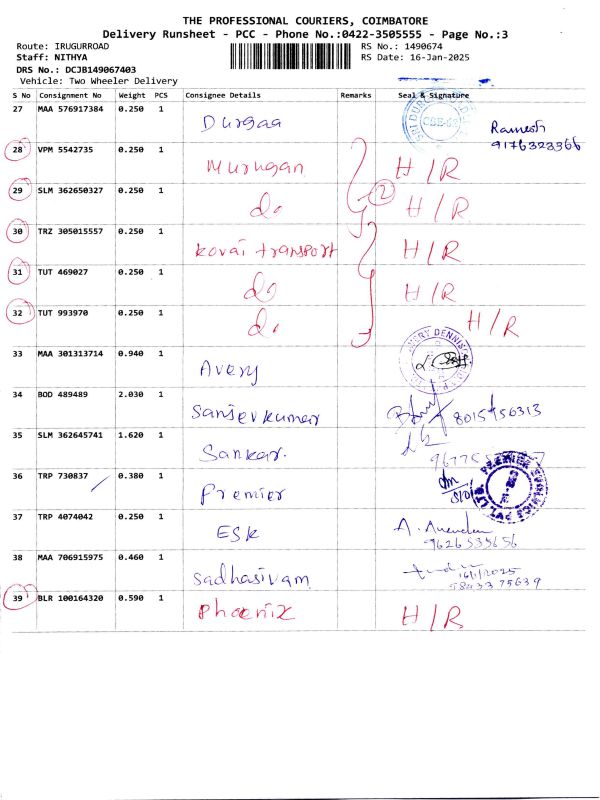 THE PROFESSIONAL COURIERS, COIMBATORE
Delivery Runsheet - PCC - Phone No.:0422-3505555 - Page No.:3
Route: IRUGURROAD RS No.: 1490674
Staff: NITHYA RS Date: 16-Jan-2025
DRS No.: DCJB149067403
Vehicle: Two Wheeler Delivery
S No Consignment No Weight PCS Consignee Details Remarks Seal & Signature
27 MAA 576917384 0.250 1 Durgaa Ramesh
9176323366
28 VPM 5542735 0.250 1 Murugan H/R
29 SLM 362650327 0.250 1 do 2 H/R
30 TRZ 305015557 0.250 1 kovai transport H/R
31 TUT 469027 0.250 1 do H/R
32 TUT 993970 0.250 1 do H/R
33 MAA 301313714 0.940 1 Avery
34 BOD 489489 2.030 1 Sanjeevkumar 8015456313
35 SLM 362645741 1.620 1 Sankar.
36 TRP 730837 0.380 1 Premier
37 TRP 4074042 0.250 1 ESK
9626535656
38 MAA 706915975 0.460 1 Sadhasivam 16/1/2025
9843375639
39 BLR 100164320 0.590 1 Phoenix H/R